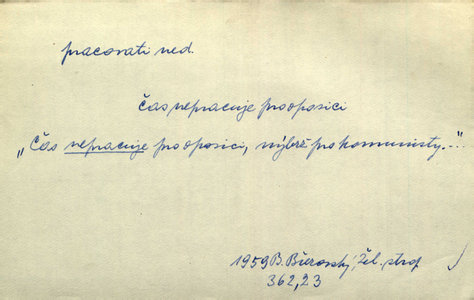 pracovati ned.
čas nepracuje pro oposici
„Čas nepracuje pro oposici, nýbrž pro komunisty.–"
1959 B. Březovský, Žel. strop
362,23